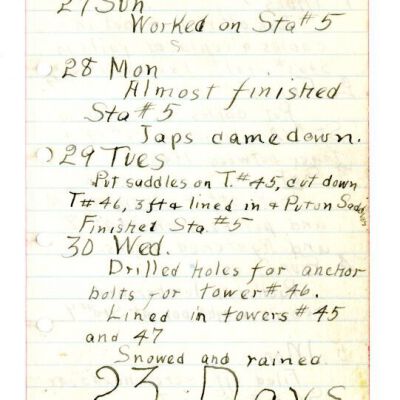 27 Sun
Worked on Sta #5
28 Mon
Almost finished
Sta #5
Japs came down.
29 Tues
Put saddles on T. #45, cut down
T #46, 3 ft & lined in & Put on Saddles
Finished Sta #5
30 Wed.
Drilled holes for anchor
bolts for tower #46.
Lined in towers #45
and 47
Snowed and rained.
23 Days